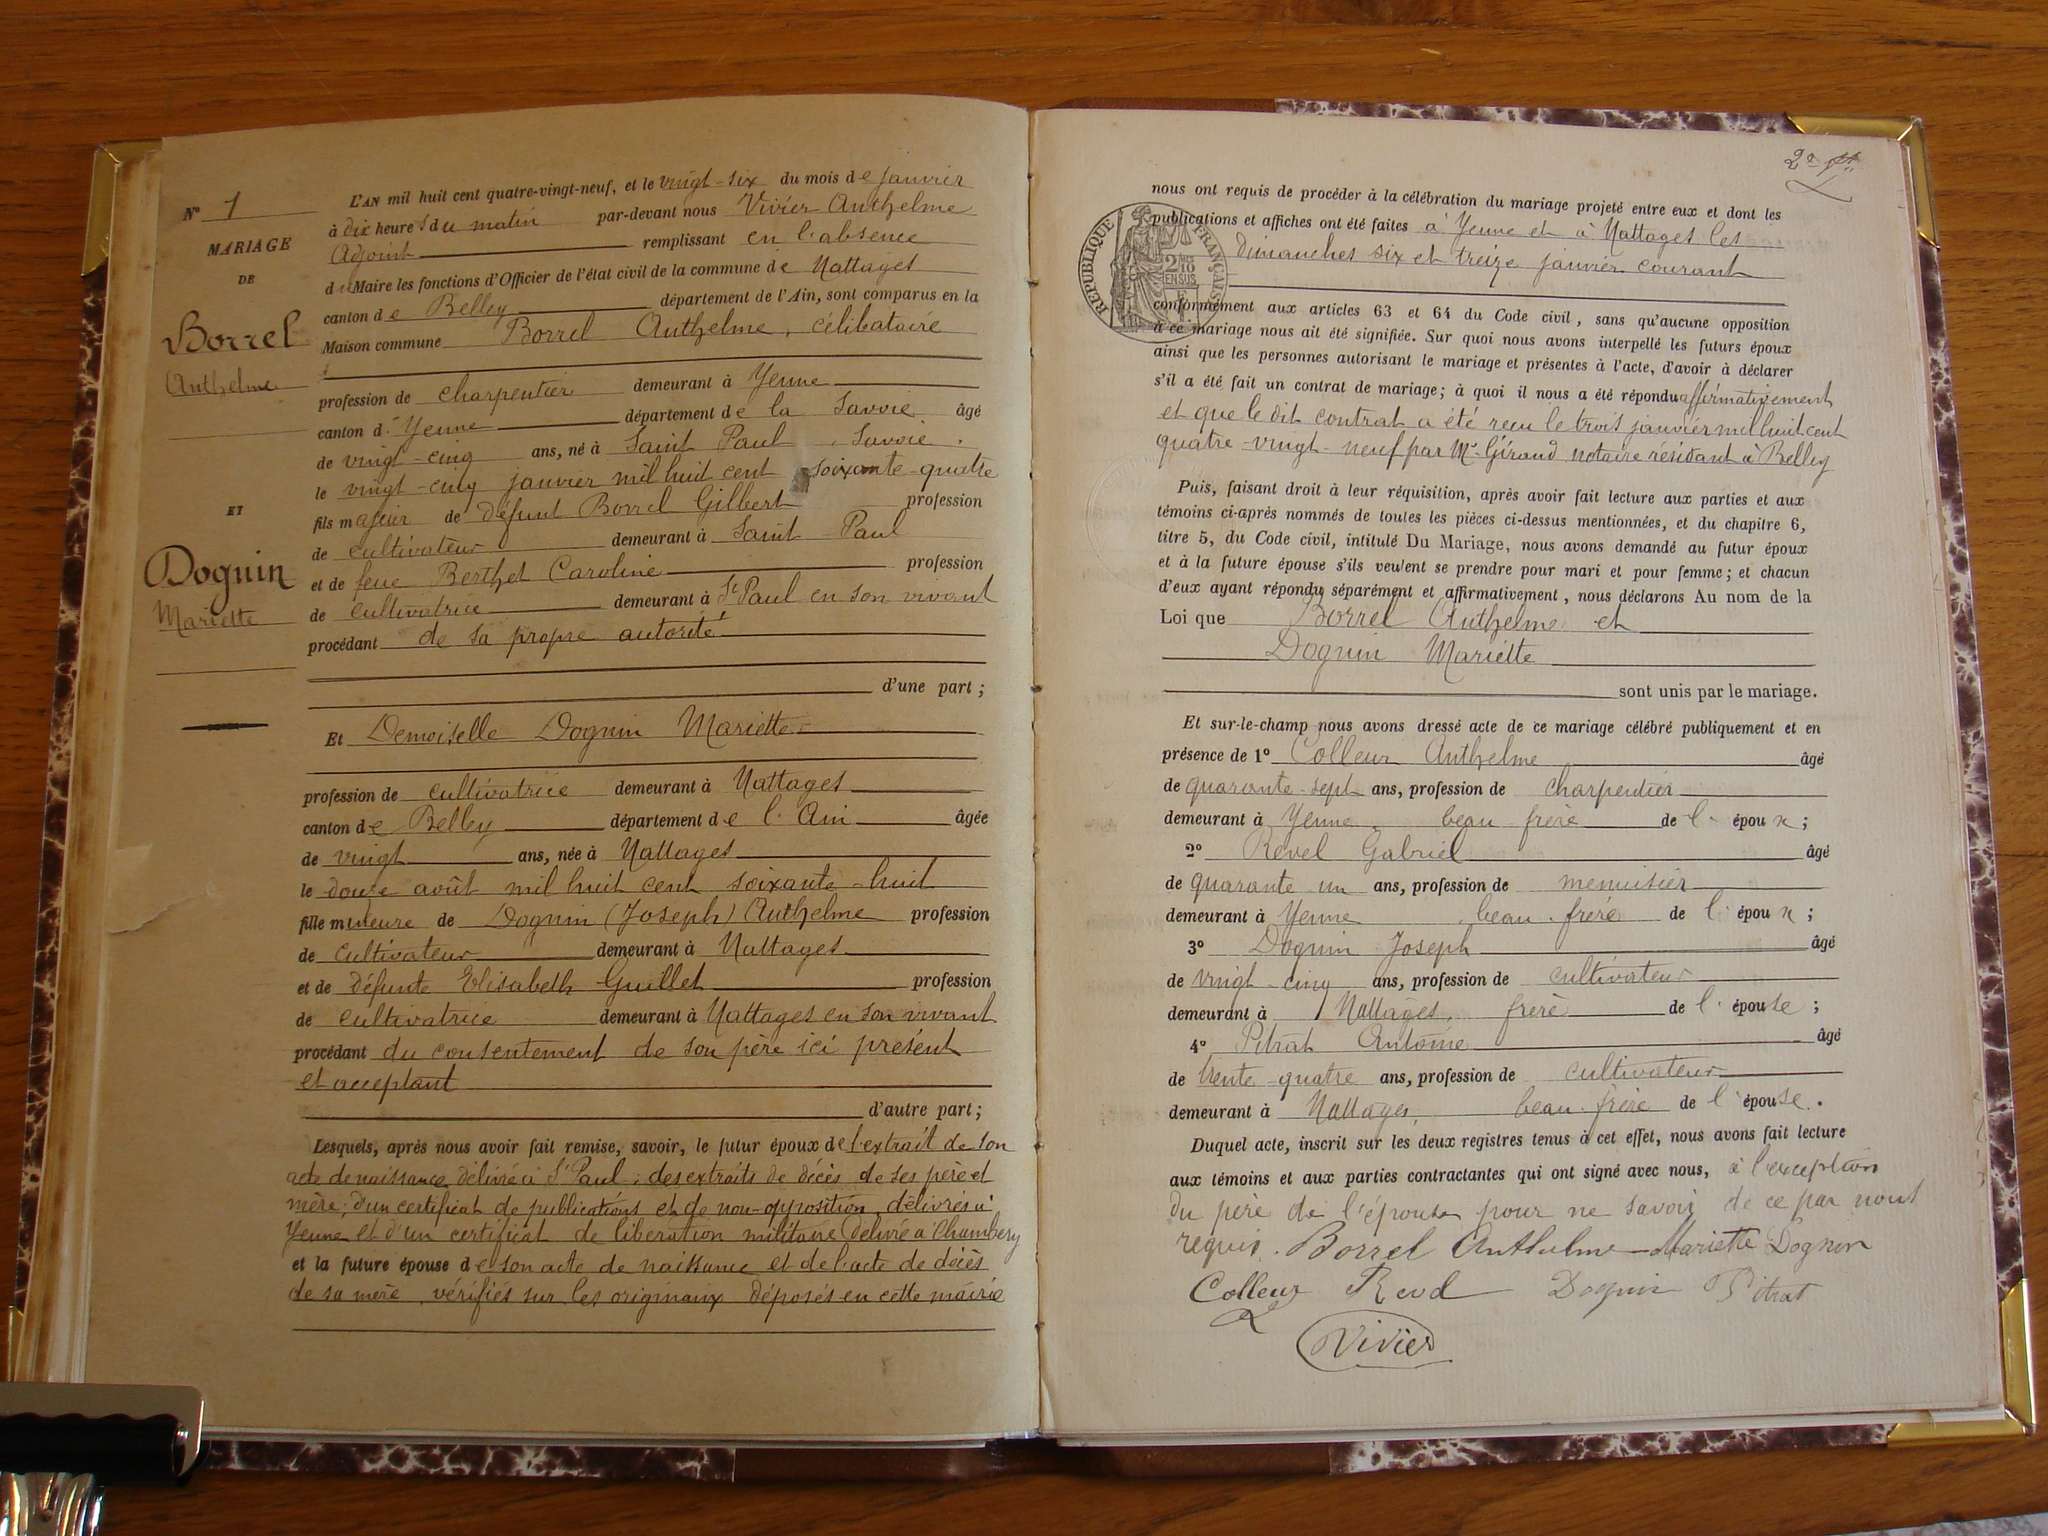 N° 1
MARIAGE
DE
Borrel
Anthelme
ET
Doguin
Mariette
L'AN mil huit cent quatre-vingt-neuf, et le vingt-six du mois de janvier
à dix heures du matin par-devant nous Vivier Anthelme
Adjoint remplissant en l'absence
du Maire les fonctions d'Officier de l'état civil de la commune de Nattages
canton de Belley département de l'Ain, sont comparus en la
Maison commune Borrel Anthelme, célibataire
profession de charpentier demeurant à Yenne
canton d'Yenne département de la Savoie âgé
de vingt-cinq ans, né à Saint Paul, Savoie.
le vingt-cinq janvier mil huit cent soixante-quatre
fils majeur de défunt Borrel Gilbert profession
de cultivateur demeurant à Saint-Paul
et de feue Berthet Caroline profession
de cultivatrice demeurant à St Paul en son vivant
procédant de sa propre autorité
d'une part;
Et Demoiselle Doguin Mariette
profession de cultivatrice demeurant à Nattages
canton de Belley département de l'Ain âgée
de vingt ans, née à Nattages
le douze août mil huit cent soixante-huit
fille mineure de Doguin (Joseph) Anthelme profession
de cultivateur demeurant à Nattages
et de défunte Elisabeth Guillet profession
de cultivatrice demeurant à Nattages en son vivant
procédant du consentement de son père ici présent
et acceptant
d'autre part;
Lesquels, après nous avoir fait remise, savoir, le futur époux de l'extrait de son
acte de naissance délivré à St Paul; des extraits de décès de ses père et
mère; d'un certificat de publications et de non-opposition, délivrés à
Yenne et d'un certificat de libération militaire délivré à Chambery
et la future épouse de son acte de naissance et de l'acte de décès
de sa mère, vérifiés sur les originaux déposés en cette mairie
2e
RÉPUBLIQUE FRANÇAISE
nous ont requis de procéder à la célébration du mariage projeté entre eux et dont les
publications et affiches ont été faites à Yenne et à Nattages les
dimanches six et treize janvier courant
conformément aux articles 63 et 64 du Code civil, sans qu'aucune opposition
à ce mariage nous ait été signifiée. Sur quoi nous avons interpellé les futurs époux
ainsi que les personnes autorisant le mariage et présentes à l'acte, d'avoir à déclarer
s'il a été fait un contrat de mariage; à quoi il nous a été répondu affirmativement
et que le dit contrat a été reçu le trois janvier mil huit cent
quatre-vingt-neuf par Me Giraud notaire résidant à Belley
Puis, faisant droit à leur réquisition, après avoir fait lecture aux parties et aux
témoins ci-après nommés de toutes les pièces ci-dessus mentionnées, et du chapitre 6,
titre 5, du Code civil, intitulé Du Mariage, nous avons demandé au futur époux
et à la future épouse s'ils veulent se prendre pour mari et pour femme; et chacun
d'eux ayant répondu séparément et affirmativement, nous déclarons Au nom de la
Loi que Borrel Anthelme et
Doguin Mariette
sont unis par le mariage.
Et sur-le-champ nous avons dressé acte de ce mariage célébré publiquement et en
présence de 1° Colleur Anthelme âgé
de quarante-sept ans, profession de charpentier
demeurant à Yenne, beau frère de l'époux;
2° Revel Gabriel âgé
de quarante un ans, profession de menuisier
demeurant à Yenne, beau-frère de l'époux;
3° Doguin Joseph âgé
de vingt-cinq ans, profession de cultivateur
demeurant à Nattages, frère de l'épouse;
4° Pitrat Antoine âgé
de trente-quatre ans, profession de cultivateur
demeurant à Nattages, beau-frère de l'épouse.
Duquel acte, inscrit sur les deux registres tenus à cet effet, nous avons fait lecture
aux témoins et aux parties contractantes qui ont signé avec nous, à l'exception
du père de l'épouse pour ne savoir de ce par nous
requis. Borrel Anthelme Mariette Doguin
Colleur Revel Doguin Pitrat
Vivier